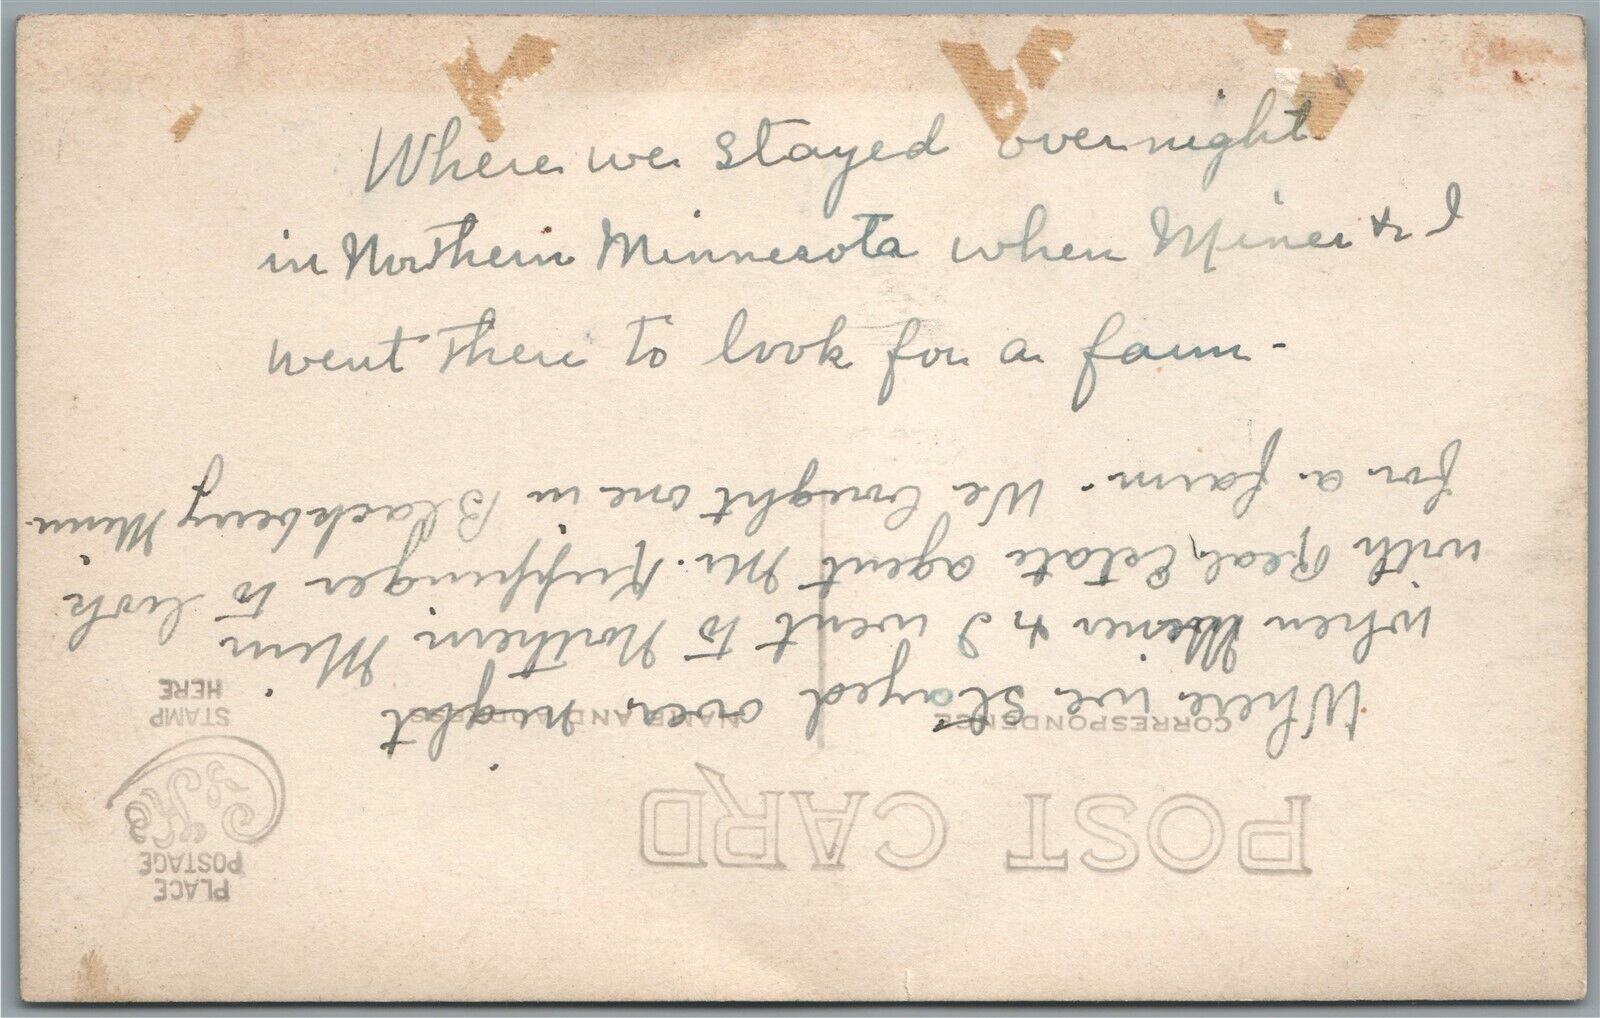 Where we stayed over night
in Northern Minnesota when Miner & I
went there to look for a farm -
POST CARD
PLACE
POSTAGE
STAMP
HERE
CORRESPONDENCE
NAME AND ADDRESS
Where we stayed over night
when Miner & I went to Northern Minn
with Real Estate agent Mr. to look
for a farm. We bought one in Blackberry Minn.